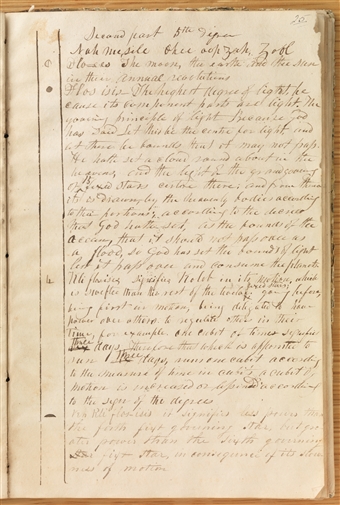 35
Second part 5th Degree
Nah me, sile Ohee oop zah, Zool
The moon, the earth and the sun
in their annual revolutions
Flos isis The highest degree of light, be
cause its component parts are light. The
governing principle of light Because God
has said Let this be the centre for light, and
let there be bounds that it may not pass.
He hath set a cloud round about in the
heavens, and the light of the grand governing
of fixed stars centre there; and from there
its is drawn, by the heavenly bodies according
to their portions; according to the decrees
that God hath set, as the bounds of the
ocean, that it should not pass over as
a flood, so God has set the bounds of light
lest it pass over and consume the planets
signifies in its motion, which
is swifter than the rest of the
fixed stars, going before,
being first in motion, being delegated to have
power over others to regulate others in their
time, for example. One cubit of time signifies
three days, Therefore that which is appointed to
run three days, runs one cubit according
to the measure of time in cubits. a cubit of
motion is increased or lessened according
to the sign of the degrees
it signifies less power than
the first governing star, but
power than the sixth governing
fixt star, in consequence of its slow
ness of motion